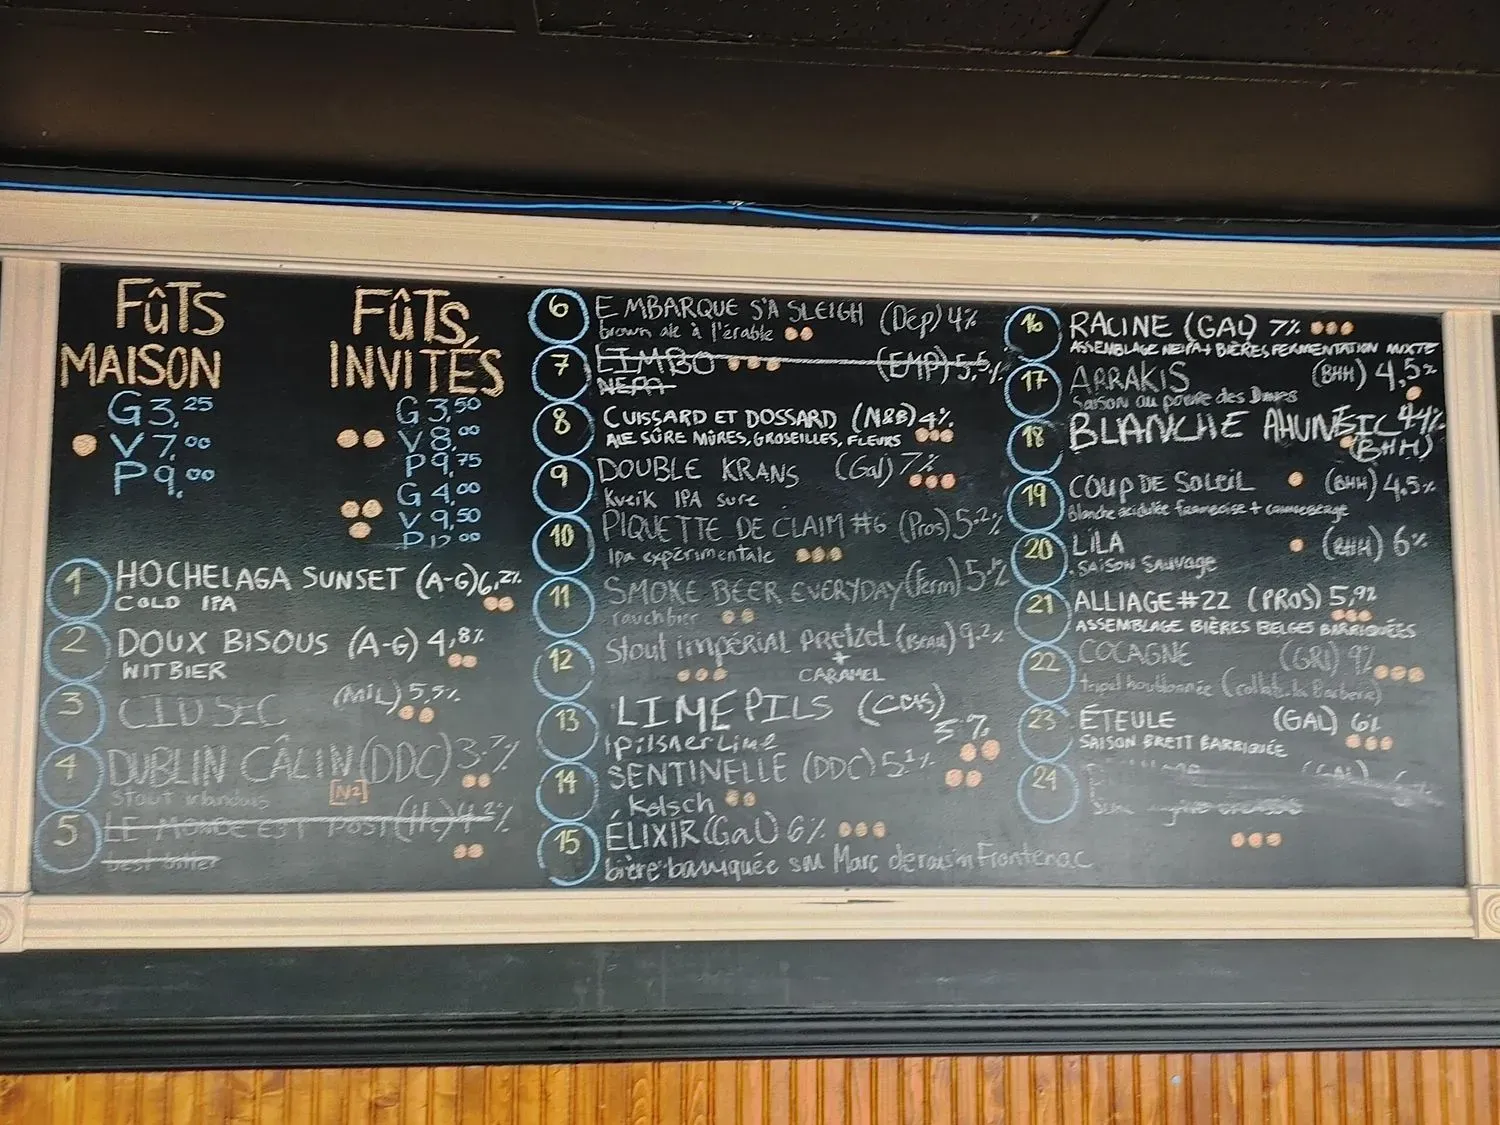 FÛTS
MAISON
G 3,25
V 7,00
P 9,00
FÛTS
INVITÉS
G 3,50
V 8,00
P 9,75
G 4,00
V 9,50
P 12,00
1 HOCHELAGA SUNSET (A-G) 6,2%
COLD IPA
2 DOUX BISOUS (A-G) 4,8%
WITBIER
3 CID SEC (MIL) 5.5%
4 DUBLIN CÂLIN (DDC) 3.7%
Stout irlandais [N2]
5 LE MONDE EST POST (Hc) 4.2%
best bitter
6 EMBARQUE S'A SLEIGH (Dép) 4%
brown ale à l'érable
7 LIMBO (EMP) 5,5%
NEPA
8 CUISSARD ET DOSSARD (N&B) 4%
ALE SÛRE MÛRES, GROSEILLES, FLEURS
9 DOUBLE KRANS (Gal) 7%
Kveik IPA sure
10 PIQUETTE DE CLAIM #6 (Pros) 5.2%
Ipa expérimentale
11 SMOKE BEER EVERYDAY (Ferm) 5%
rauchbier
12 Stout impérial pretzel (Beau) 9.2%
+
CARAMEL
13 LIME PILS (CDIS)
5%
pilsner lime
14 SENTINELLE (DDC) 5.1%
Kolsch
15 ÉLIXIR (Gal) 6%
bière barriquée sur Marc de raisin Frontenac
16 RACINE (GAL) 7%
ASSEMBLAGE NEIPA + BIÈRES FERMENTATION MIXTE
17 ARRAKIS (BHH) 4,5%
Saison au poivre des Dunes
18 BLANCHE AHUNTSIC 4.4%
(BHH)
19 COUP DE SOLEIL (BHH) 4.5%
Blanche acidulée framboise + canneberge
20 LILA (BHH) 6%
SAISON SAUVAGE
21 ALLIAGE #22 (PROS) 5,9%
ASSEMBLAGE BIÈRES BELGES BARRIQUÉES
22 COCAGNE (GRI) 9%
Tripel houblonnée (collab. la Barberie)
23 ÉTEULE (GAL) 6%
SAISON BRETT BARRIQUÉE
24 (GAL)